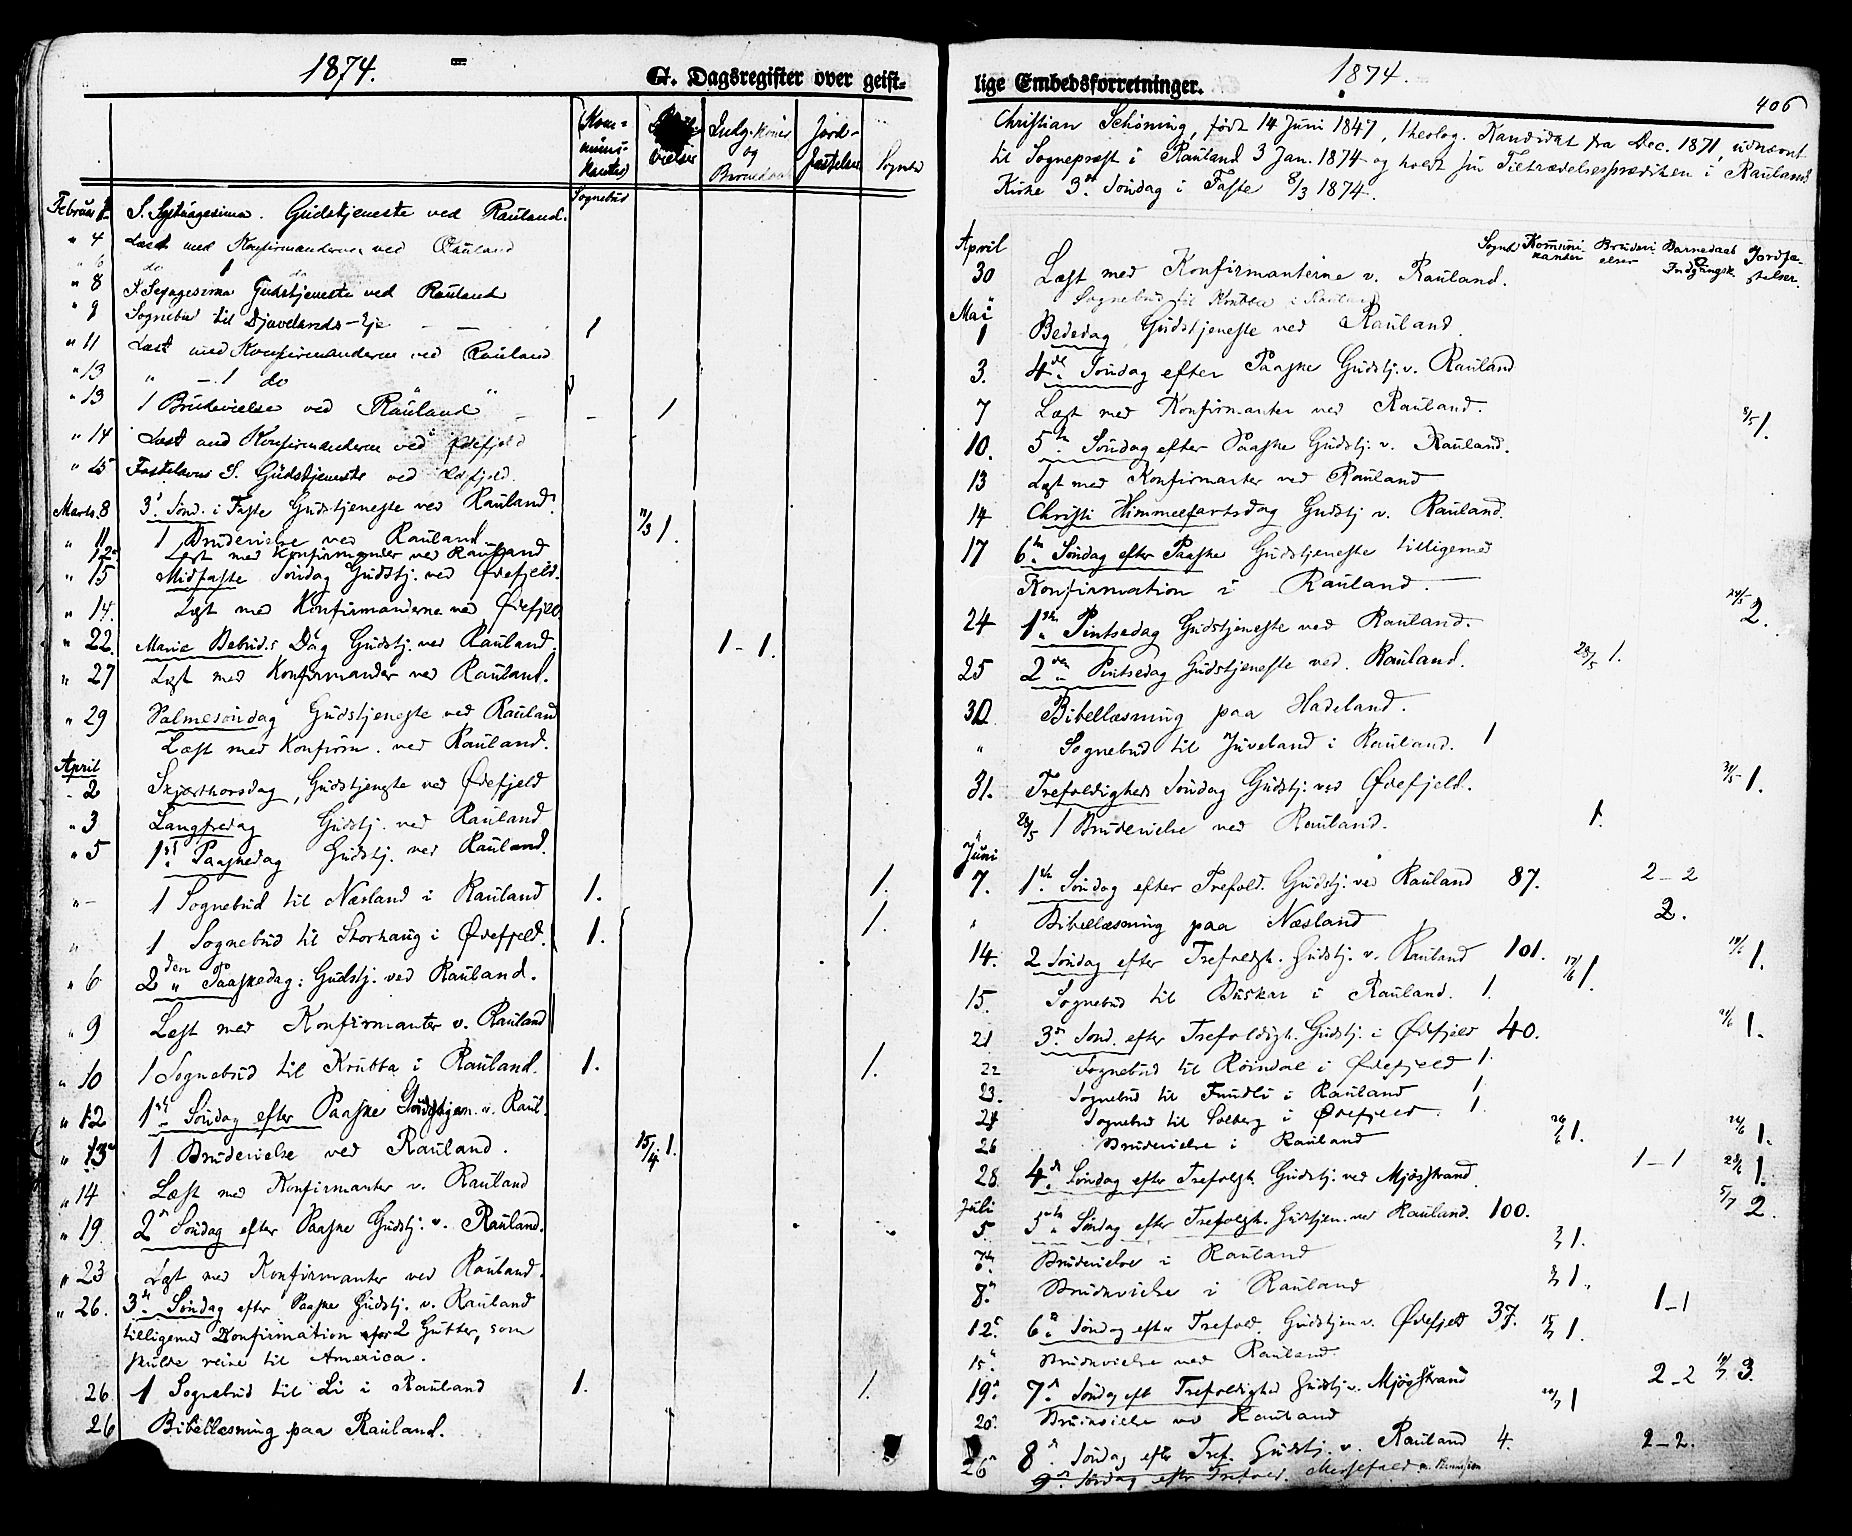 1874.
G. Dagsregister over geist-
Kom-
muni-
kanter
vielser
Indg. Koner
og
Jord-
fæstelser
Sognebud
Sognebud
Februar 1. S. Septuagesima. Gudstjeneste ved Rauland.
" 4 Læst med Konfirmanderne ved Rauland
" 6 do 1 do
" 8 S. Sexagesima Gudstjeneste ved Rauland
" 9 Sognebud til Djuvelands-Eje 1
" 11 Læst med Konfirmanderne ved Rauland
" 13 " - 1 do
" 13 1 Brudevielse ved Rauland 1
" 14 Læst med Konfirmanderne ved Øifjeld
" 15 Fastelavns S. Gudstjeneste ved Øifjeld.
Marts. 8 3. Sønd. i Faste Gudstjeneste ved Rauland. 11/3 1.
" 11 1 Brudevielse ved Rauland
" 12 Læst med Konfirmander ved Rauland
" 15 Midfaste Søndag Gudstj. ved Øvefjeld.
" 14. Læst med Konfirmanderne ved Øvefjeld
" 22. Marie Bebud.s Dag Gudstj. ved Rauland. 1-1.
" 27 Læst med Konfirmander ved Rauland.
" 29 Palmesøndag Gudstjeneste ved Rauland
Læst med Konfirm. ved Rauland.
April
- 2 Skjærthorsdag, Gudstjeneste ved Øvefjeld
" 3 Langfredag Gudstj. ved Rauland
" 5 1st. Paaskedag Gudstj. ved Rauland.
" - 1 Sognebud til Næsland i Rauland 1. 1.
" 1 Sognebud til Storhaug i Øvefjeld. 1. 1.
" 6 2den Paaskedag: Gudstj. ved Rauland.
" 9 Læst med Konfirmanter v. Rauland
" 10 1 Sognebud til Krubba i Rauland. 1. 1.
" 12 1st. Søndag efter Paaske Gudstjen. v. Raul.
" 13 1 Brudevielse ved Rauland. 15/4 1.
" 14 Læst med Konfirmanter v. Rauland
" 19. 2. Søndag efter Paaske Gudstj. v. Rauland.
" 23 Læst med Konfirmanter ved Rauland.
" 26. 3. Søndag efter Paaske Gudstj. v. Rauland
tilligemed Konfirmation for 2 Gutter, som
skulde reise til America.
26 1 Sognebud til Li i Rauland 1. 1.
26 Bibellæsning paa Rauland.
lige Embedsforretninger.
1874.
406
Christian Schöning, født 14 Juni 1847, theolog. Kandidat fra Dec. 1871 udnævnt
til Sognepræst i Rauland 3 Jan. 1874 og holdt sin Tiltrædelsesprædiken i Raulands
Kirke 3. Søndag i Faste 8/3 1874.
Sogneb Kommuni-kanter Brudevi-elser Barnedaab & Indgangsk. Jordfæ-stelser.
April
30 Læst med Konfirmanterne v. Rauland.
Sognebud til Krubba i Rauland
Mai
1 Bededag, Gudstjeneste ved Rauland.
3. 4de Søndag efter Paaske Gudstj. v. Rauland
7 Læst med Konfirmanter ved Rauland. 8/5 1.
10. 5te Søndag efter Paaske Gudstj. v. Rauland.
13 Læst med Konfirmanter ved Rauland
14 Christi Himmelfartsdag Gudstj v. Rauland.
17 6te Søndag efter Paaske Gudstjeneste tilligemed
Konfirmation i Rauland.
24 1ste Pintsedag Gudstjeneste ved Rauland. 24/5 2.
25 2den Pintsedag Gudstjeneste ved. Rauland. 28/5 1.
30 Bibellæsning paa Hadeland.
" Sognebud til Juveland i Rauland. 1
31. Trefoldigheds Søndag Gudstj. ved Øvefjeld. 31/5 1.
28/5 1 Brudevielse ved Rauland. 1.
Juni
7. 1ste Søndag efter Trefold. Gudstj. ved Rauland 87. 2-2
" Bibellæsning paa Næsland 2.
14. 2 Søndag efter Trefoldgh. Gudstj. v. Rauland 101. 17/6 1. 1.
15. Sognebud til Buskar i Rauland. 1.
21 3. Sønd. efter Trefoldigh. Gudstj. i Øvefjeld 40. 21/6 1.
22 Sognebud til Röindal i Øvefjeld 1.
23. Sognebud til Fundli i Rauland 1.
24 Sognebud til Solberg i Øvefjeld. 1.
26 Brudevielse i Rauland 26/6 1. 1.
28. 4de Søndag efter Trefoldgh. Gudstj. ved Mjøsstrand 1-1 28/6 1.
Juli
5 5te Søndag efter Trefoldgh. Gudstjen. ved Rauland. 100. 5/7 2.
7. Brudevielse i Rauland 1.
8. Brudevielse i Rauland 1.
12. 6. Søndag efter Trefold. Gudstjen v. Øvefjeld 37. 1-1
15. Brudevielse ved Rauland. 15/7 1.
19. 7. Søndag eft Trefoldighed Gudstj. v. Mjøsstrand 2-2 3.
20. Brudevielse ved Rauland 1
26 8. Søndag efter Tref. Gudstj. v. Rauland 4. 2-2.
9. Søndag efter Trefold. Messefald